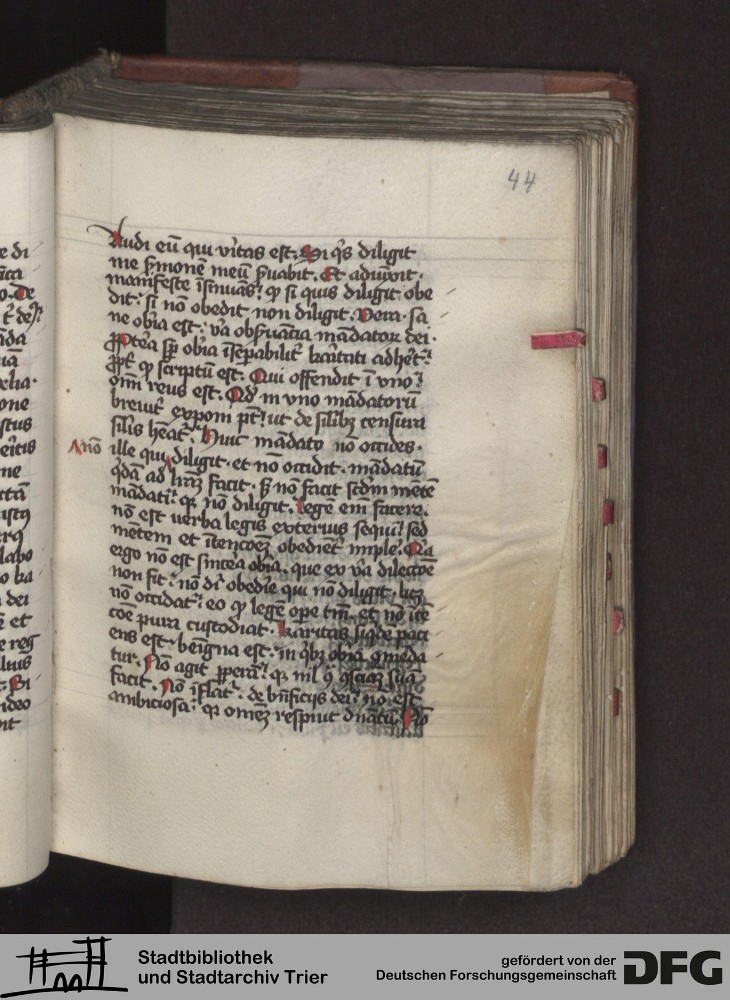 44
Audi eū qui v̾itas est. Si q̾s diligit
me s̾monē meū s̾uabit. Et adiūxit.
manifeste īsinuās? ꝙ si quis diligit obe
dit: si nō obedit non diligit. Vera sa
ne obīa est: v̾a obs̾uācia mādator dei.
ꝓpterea sp̄ obīa īsepabilit̾ karitati adhēt:
ꝓpt̾ ꝙ scriptū est. Qui offendit ī uno:
om̄i reus est. Qd̾ in uno mādatorū
breuit̾ expom pt̄: ut de silibꝫ censura
silis heāt̾. Huic mādato nō occides.
nō ille qui diligit. et nō occidit. mādatū
q̾dā ad lr̄aꝫ facit. sꝫ nō facit scdm mētē
mādati: qꝛ nō diligit. Legē em̄ facere.
nō est uerba legis exterius sequi: sed
mētem et ītencōeꝫ obediēt̾ imple̾. Qa
ergo nō est sincēa obīa. que ex v̾a dilectōe
non fit: nō dr̄ obedīe qui nō diligit. licꝫ
nō occidat: eo ꝙ legē ope tm̄. et nō ītē
cōe pura custodiat. Karitas siq̾de paci
ens est. beīgna est. in q̾bꝫ obīa q̾meda
tur. Nō agit ꝑperā: qꝛ nil
facit. Nō īflat̾: de bn̄ficijs dei: nō est
ambiciosa: qꝛ omēꝫ respuit dn̄atū. Nō
Stadtbibliothek
und Stadtarchiv Trier
gefördert von der
Deutschen Forschungsgemeinschaft
DFG